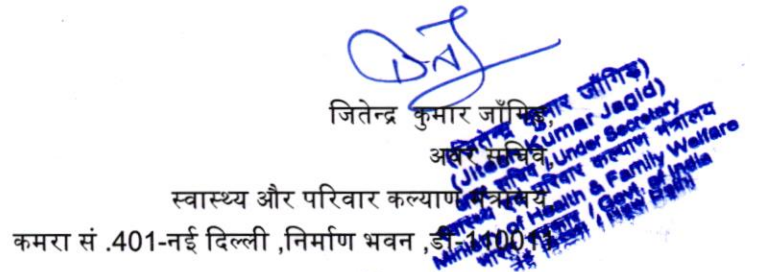 जितेन्द्र कुमार जाँगिड़,
अवर सचिव,
स्वास्थ्य और परिवार कल्याण मंत्रालय,
कमरा सं .401-नई दिल्ली ,निर्माण भवन ,डी-110011
(जितेन्द्र कुमार जाँगिड़)
(Jitendra Kumar Jagid)
अवर सचिव / Under Secretary
स्वास्थ्य एवं परिवार कल्याण मंत्रालय
Ministry of Health & Family Welfare
भारत सरकार / Govt. of India
नई दिल्ली / New Delhi